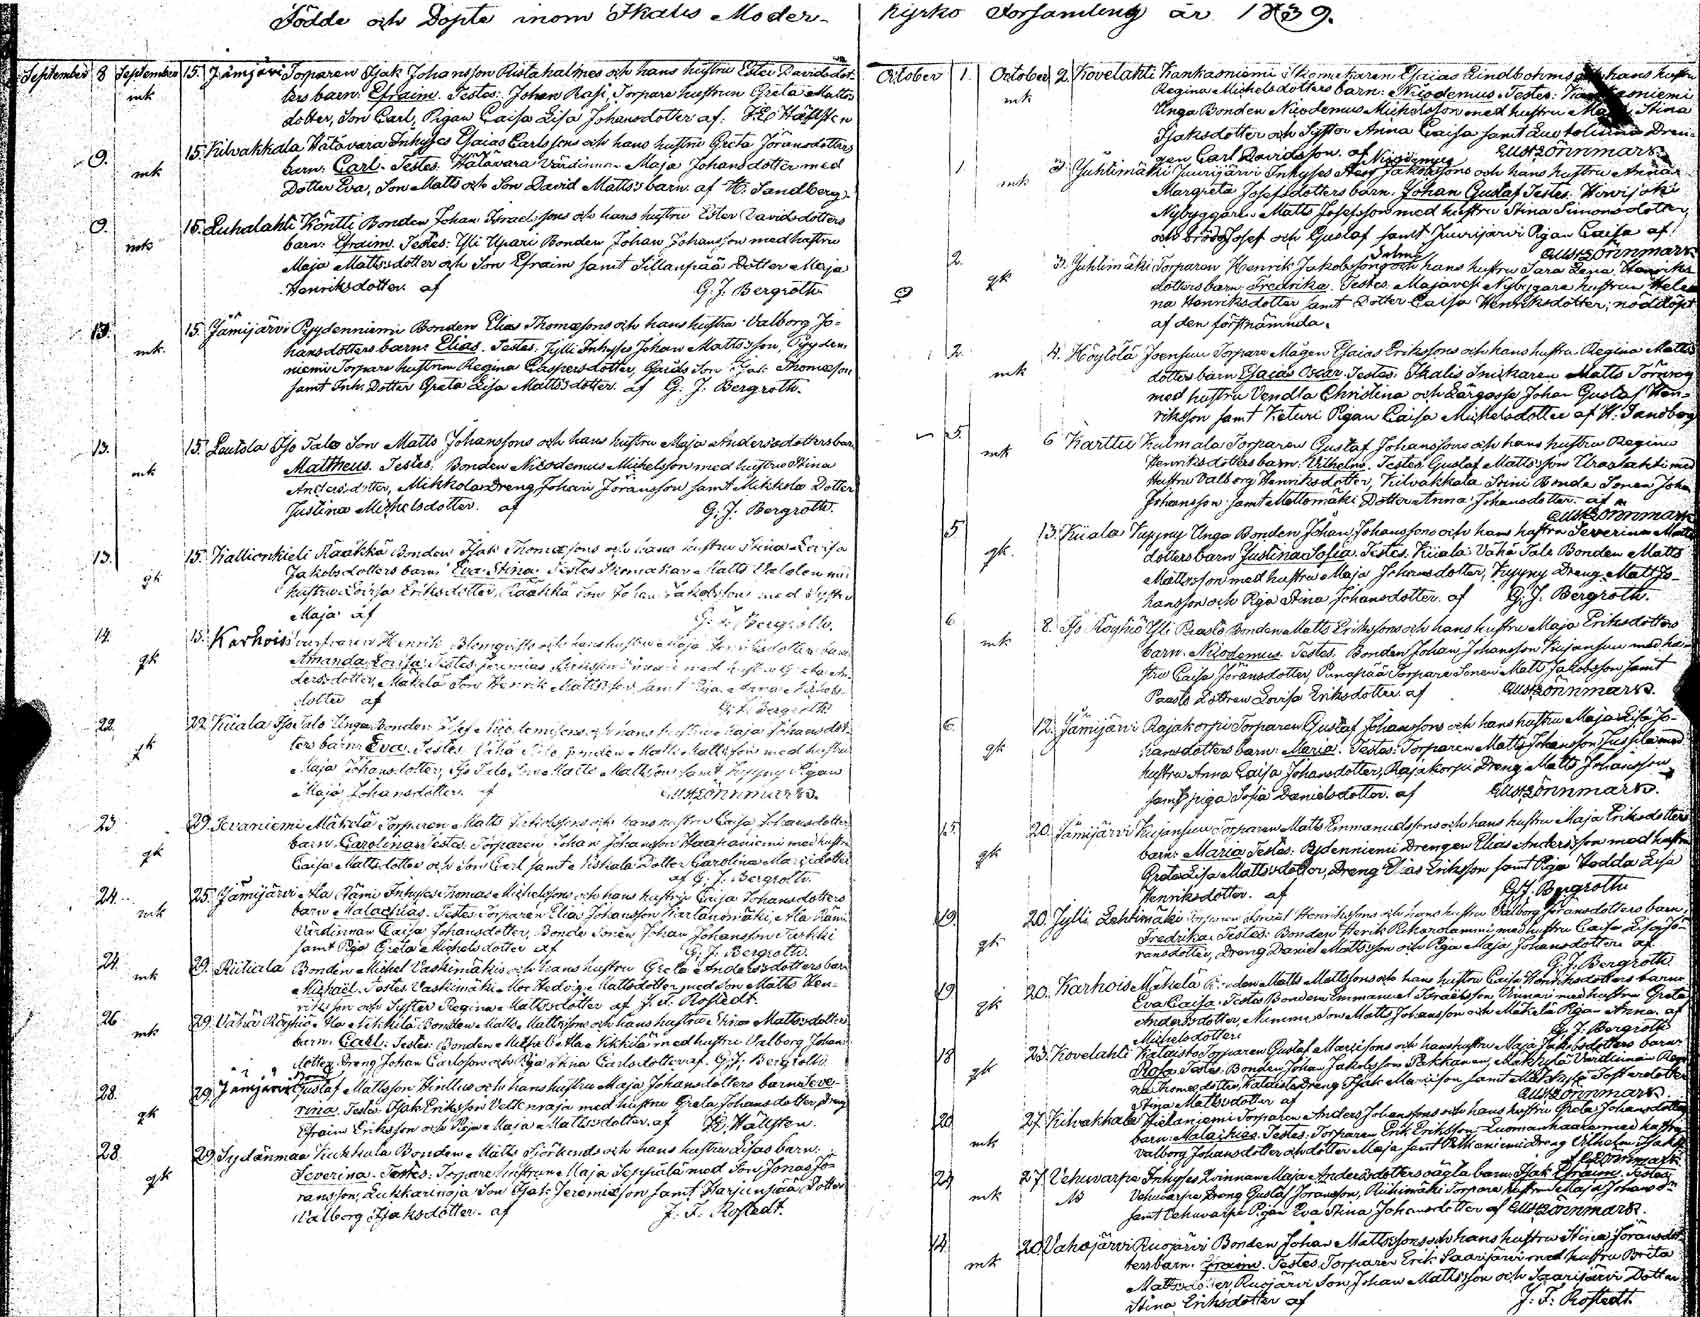 Födde och Döpte inom Ikalis Moder-
September 8 September 15. Jämijärvi Torparen Isak Johansson Ristahalmes och hans hustru Ester Davidsdot-
mk ters barn: Efraim. Testes: Johan Rasi Torpare hustrun Greta Matts
dotter, Son Carl, Pigan Caisa Lisa Johansdotter af:
9. 15. Kilvakkala Hätävara Inhyses Esaias Carlssons och hans hustru Greta Göransdotters
mk barn: Carl. Testes. Hätävara Värdinnan Maja Johansdotter med
Dotter Eva, Son Matts och Son David Matts:s barn af H. Sandberg.
9. 15. Luhalahti Köntti Bonden Johan Israelssons och hans hustru Ester Davidsdotters
mk barn: Efraim. Testes: Yli Upari Bonden Johan Johansson med hustru
Maja Mattsdotter och Son Efraim samt Sillanpää Dotter Maja
Henriksdotter. af G. J. Bergroth.
13. 15. Jämijärvi Pyydenniemi Bonden Elias Thomæsons och hans hustru Valborg Jo-
mk hansdotters barn: Elias. Testes: Jylli Inhyses Johan Mattsson, Pyyden-
niemi Torpare hustrun Regina Caspersdotter, Gårds Son Isak Thomæson
samt Inh: Dotter Greta Lisa Mattsdotter. af G. J. Bergroth.
13. 15. Leutola Iso Talo Son Matts Johanssons och hans hustru Maja Andersdotters barn
mk Mattheus. Testes: Bonden Nicodemus Michelsson med hustru Stina
Andersdotter, Mikkola Dreng Johan Göransson samt Mikkola Dotter
Justina Michelsdotter. af G. J. Bergroth.
13. 15. Kallionkieli Rääkkä Bonden Isak Thomæsons och hans hustru Stina Lovisa
gk Jakobsdotters barn: Eva Stina. Testes Skomakar Matts
hustru Lovisa Eriksdotter, Rääkkä Son Johan Jakobsson med Syster
Maja af G. J. Bergroth.
14. 15. Karhois Henrik Blomqvists och hans hustru Maja Henriksdotters barn
gk Amanda Lovisa. Testes: Jeremias med hustru Greta An-
dersdotter, Mäkelä Son Henrik Mattsson samt Piga Anna
dotter af G. J. Bergroth.
22. 22. Kiiala Iso Talo Unga Bonden Josef Nicodemissons och hans hustru Maja Johansdot-
gk ters barn: Eva. Testes: Vähä Talo Bonden Matts Mattsson med hustru
Maja Johansdotter, Iso Talo Son Matts Mattsson samt Kyyny Pigan
Maja Johansdotter. af Gust: Lönnmark.
23. 29. Sevaniemi Mäkelä Torparen Matts Jakobssons och hans hustru Caisa Johansdotters
gk barn: Carolina. Testes: Torparen Johan Johansson Haapaniemi med hustru
Caisa Mattsdotter och Son Carl samt Kiskala Dotter Carolina
af G. J. Bergroth.
24. 25. Jämijärvi Ala Rämi Inhyses Thomas Michelssons och hans hustru Caisa Johansdotters
mk barn Malachias. Testes: Torparen Elias Johansson Ala Rämi
Värdinnan Caisa Johansdotter, Bonde Sonen Johan Johansson
samt Piga Greta Michelsdotter af G. J. Bergroth.
24. 29. Riitiala Bonden Michel Vaskimäkis och hans hustru Greta Andersdotters barn
mk Michaël. Testes: Vaskimäki Mor Hedvig Mattsdotter med Son Matts Hen-
riksson och Syster Regina Mattsdotter af J. F. Rostedt.
26. 29. Vähä Röyhiö Ala Nikkilä Bonden Matts Mattssons och hans hustru Stina Mattsdotters
mk barn: Carl. Testes: Bonden Michel Ala Nikkilä med hustru Valborg Johans
dotter, Dreng Johan Carlsson och Piga Stina Carlsdotter af. G. J. Bergroth.
28. 29. Jämijärvi Gustaf Mattsson och hans hustru Maja Johansdotters barn Seve-
gk rina. Testes: Isak Eriksson med hustru Greta Johansdotter, Dreng
Efraim Eriksson och Piga Maja Mattsdotter. af
28. 29. Sydänmaa Kuckula Bonden Matts och hans hustru Lisas barn:
gk Severina. Testes: Torpare hustrun Maja Seppälä med Son Jonas Gö-
ransson, Leukkarinoja Son Isak Jeremiæson samt Harjunpää Dotter
Valborg Isaksdotter. af J. F. Rostedt.
Kyrko Församling år 1839.
October 1. October 2. Kovelahti Kankasniemi Skomakaren Esaias Lindbohms och hans hustru
mk Regina Michelsdotters barn: Nicodemus. Testes: Kankasniemi
Unga Bonden Nicodemus Michelsson med hustru Maja, Stina
Isaksdotter och Syster Anna Caisa samt Dren-
gen Carl Davidsson. af Gust: Lönnmark.
1 3. Jyhlimäki Juurijärvi Inhyses Jakobssons och hans hustru Anna
mk Margreta Josefsdotters barn. Johan Gustaf. Testes. Hirvijoki
Nybyggaren Matts Josefsson med hustru Stina Simonsdotter,
och bröder Josef och Gustaf samt Juurijärvi Pigan Caisa af
Gust: Lönnmark
2. 3. Jyhlimäki Torparen Henrik Jakobssons och hans hustru Sara Lena Henriks
gk dotters barn: Fredrika. Testes: Majavesi Nybyggare hustrun Hele-
na Henriksdotter samt Dotter Caisa Henriksdotter; nöddöpt
af den förstnämnda.
2. 4. Höytölä Joensuu Torpare Mågen Esaias Erikssons och hans hustru Regina Matts
mk dotters barn Esaias Oskar. Testes: Ikalis Snickaren Matts
med hustru Vendla Christina och Lärgosse Johan Gustaf Hen-
riksson samt Keturi Pigan Caisa Michelsdotter af H. Sandberg
5. 6 Karttu Kulmala Torparen Gustaf Johanssons och hans hustru Regina
mk Henriksdotters barn: Vilhelm. Testes Gustaf Mattsson med
hustru Valborg Henriksdotter, Kilvakkala Bonde Sonen Johan
Johansson samt Mattomäki Dotter Anna Johansdotter. af
Gust: Lönnmark
5 13. Kiiala Kyyny Unga Bonden Johan Johanssons och hans hustru Severina Matts
gk. dotters barn Justina Sofia. Testes. Kiiala Vähä Talo Bonden Matts
Mattsson med hustru Maja Johansdotter, Kyyny Dreng Matts Jo-
hansson och Piga Stina Johansdotter. af G. J. Bergroth.
6 8. Iso Röyhiö Yli Paaslo Bonden Matts Erikssons och hans hustru Maja Eriksdotters
mk barn. Nicodemus. Testes. Bonden Johan Johansson Kujansuu med hu-
stru Caisa Göransdotter, Punapää Torpare Sonen Matts Jakobsson samt
Paaslo Dottren Lovisa Eriksdotter af Gust: Lönnmark.
6. 12. Jämijärvi Rajakorpi Torparen Gustaf Johanssons och hans hustru Maja Lisa Jo-
gk hansdotters barn: Maria. Testes: Torparen Matts Johansson Jussila med
hustru Anna Caisa Johansdotter, Rajakorpi Dreng Matts Johansson
samt piga Sofia Danielsdotter. af Gust: Lönnmark.
15. 20. Jämijärvi Kujansuu Torparen Matts Emmanuelssons och hans hustru Maja Eriksdotters
gk barn: Maria. Testes: Pydenniemi Drengen Elias Andersson med hustru
Greta Lisa Mattsdotter, Dreng Elias Eriksson samt Piga Hedda Lisa
Henriksdotter. af G. J. Bergroth.
19. 20. Jylli Lehtimäki Torparen Israel Henrikssons och hans hustru Valborg Göransdotters barn:
gk Fredrika. Testes: Bonden Henrik med hustru Caisa Lisa Gö-
ransdotter, Dreng Daniel Mattsson och Piga Maja Johansdotter. af
G. J. Bergroth.
19 20. Karhois Mäkelä Bonden Matts Mattssons och hans hustru Caisa Henriksdotters barn:
gk Eva Caisa. Testes Bonden Emmanuel Israelsson Vinnari med hustru Greta
Andersdotter, Son Matts Johansson och Mäkelä Piga Anna. af
Michelsdotter G. J. Bergroth
18 23. Kovelahti Kataisto Torparen Gustaf Marcisons och hans hustru Maja Jakobsdotters barn:
gk Testes: Bonden Johan Jakobsson Pekkanen, Värdinnan Regi-
na Thomædotter, Kataisto Dreng Isak Marcison samt
Stina Mattsdotter af Gust: Lönnmark.
20 27. Kilvakkala Hietaniemi Torparen Anders Johanssons och hans hustru Greta Johansdotters
mk barn: Malachias. Testes: Torparen Erik Eriksson Luomanhaara med hustru
Valborg Johansdotter och dotter Maja samt Dreng Vilhelm
af Lönnmark
24 27. Vehuvarpe Inhyses Qvinnan Maja Andersdotters oägta barn: Isak Efraim. Testes
mk Vehuvarpe Dreng Gustaf Göransson, Ruhimäki Torpare hustrun Maja Johansd:r
samt Vehuvarpe Pigan Eva Stina Johansdotter af Gust: Lönnmark.
14. 20 Vahojärvi Ruojärvi Bonden Johan Mattssons och hans hustru Stina Göransdot-
mk ters barn. Efraim. Testes Torparen Erik Saarijärvi med hustru Brita
Mattsdotter, Ruojärvi Son Johan Mattsson och Saarijärvi Dotter
Stina Eriksdotter af J. F. Rostedt.